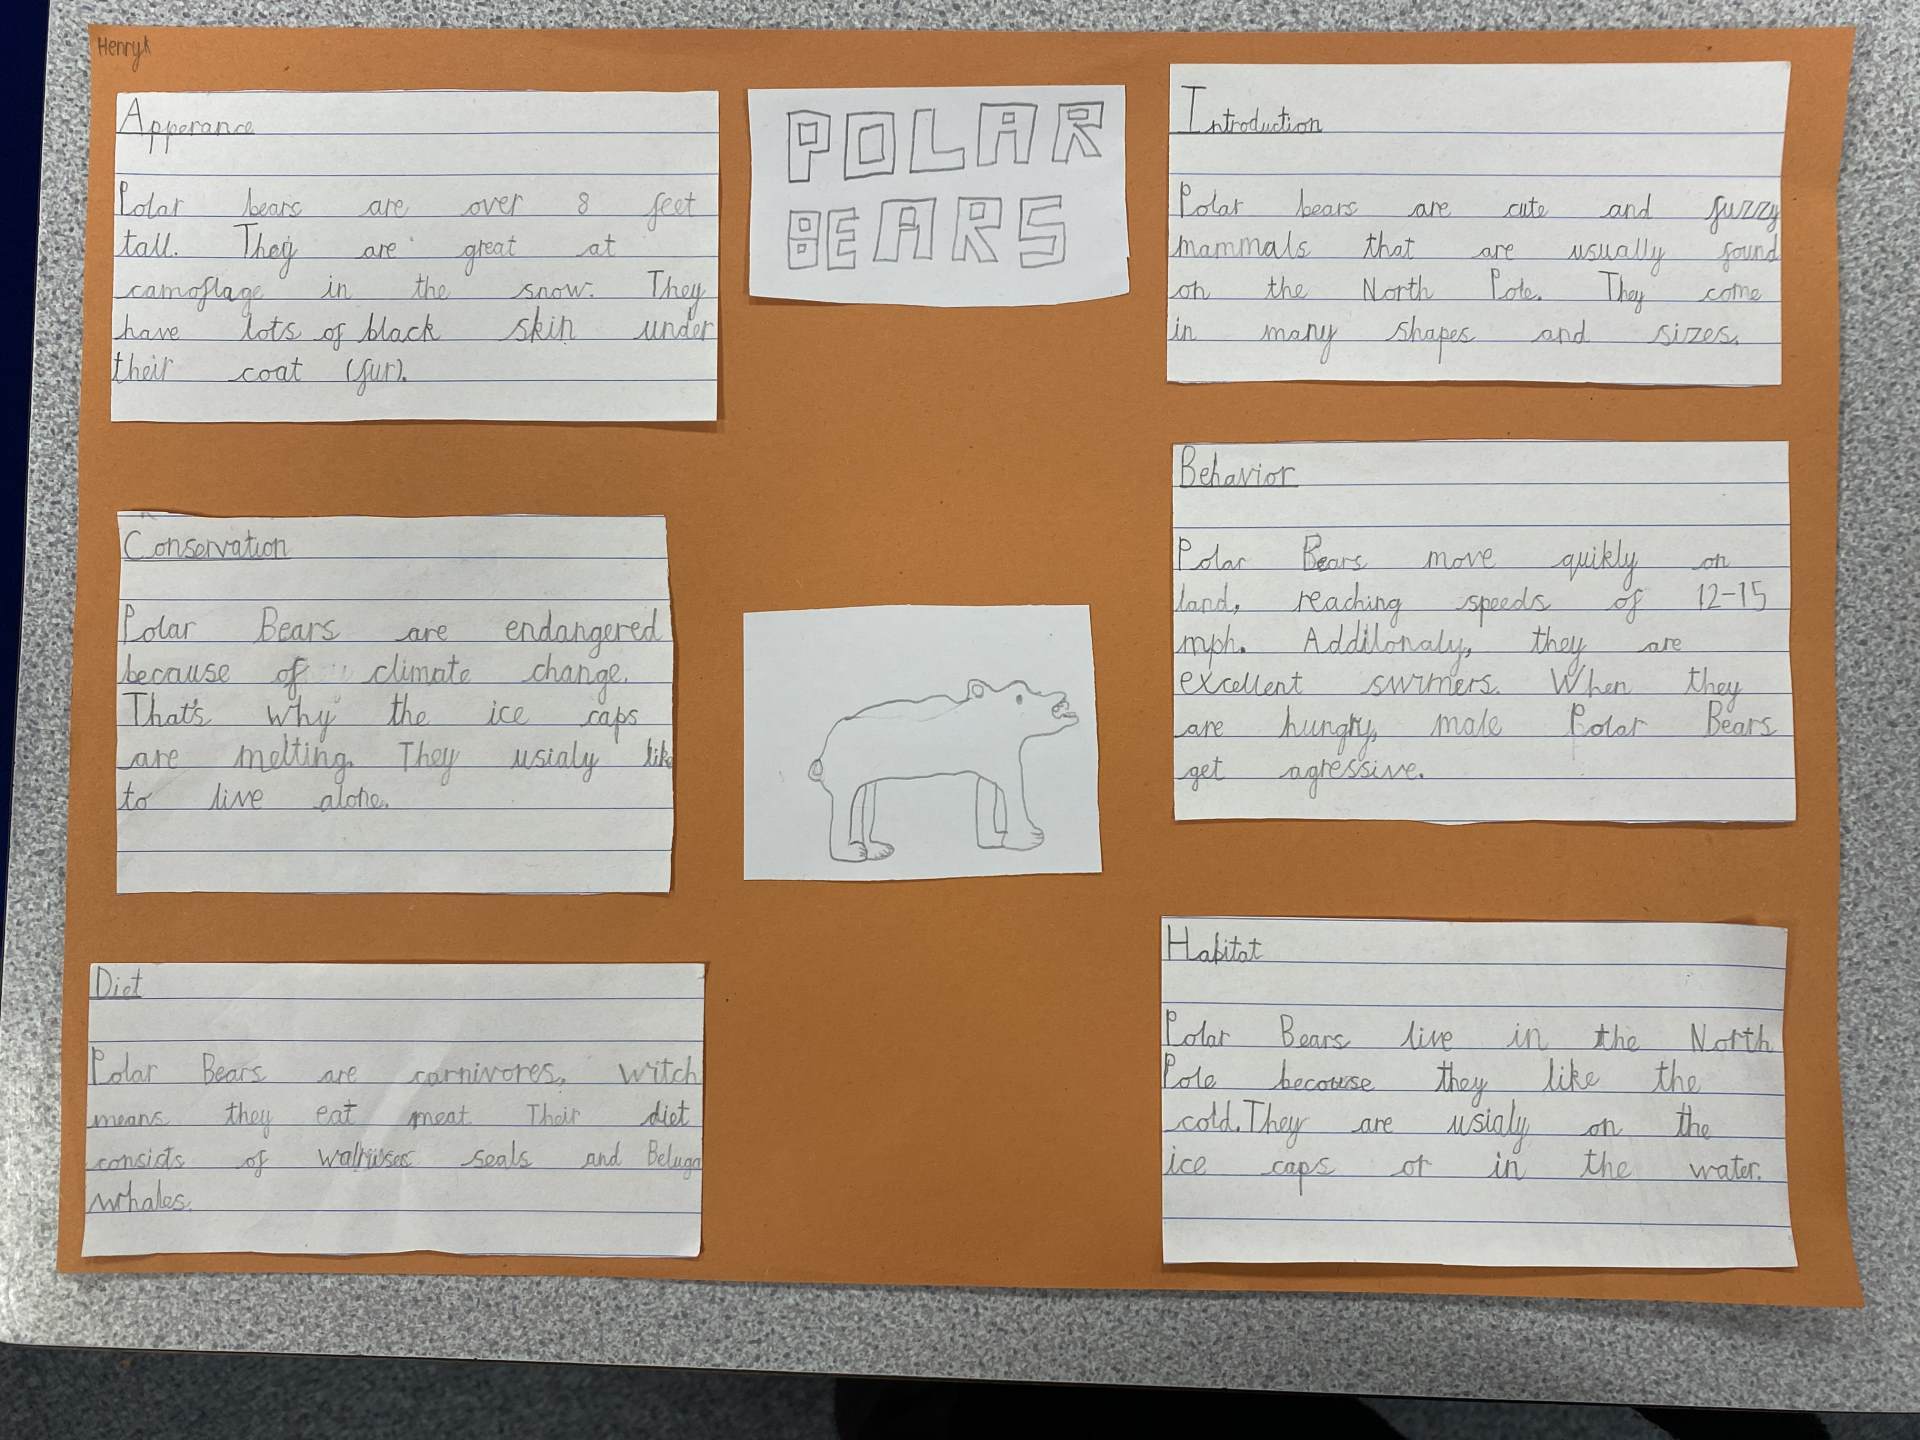 Henryk
Apperance
Polar bears are over 8 feet
tall. They are great at
camoflage in the snow. They
have lots of black skin under
their coat (fur).
POLAR
BEARS
Introduction
Polar bears are cute and fuzzy
mammals that are usually found
on the North Pole. They come
in many shapes and sizes.
Conservation
Polar Bears are endangered
because of climate change.
That's why the ice caps
are melting. They usialy like
to live alone.
Behavior
Polar Bears move quikly on
land, reaching speeds of 12-15
mph. Addilonaly, they are
excellent swimers. When they
are hungry, male Polar Bears
get agressive.
Diet
Polar Bears are carnivores, witch
means they eat meat. Their diet
consicts of walruses seals and Beluga
whales.
Habitat
Polar Bears live in the North
Pole because they like the
cold. They are usialy on the
ice caps or in the water.